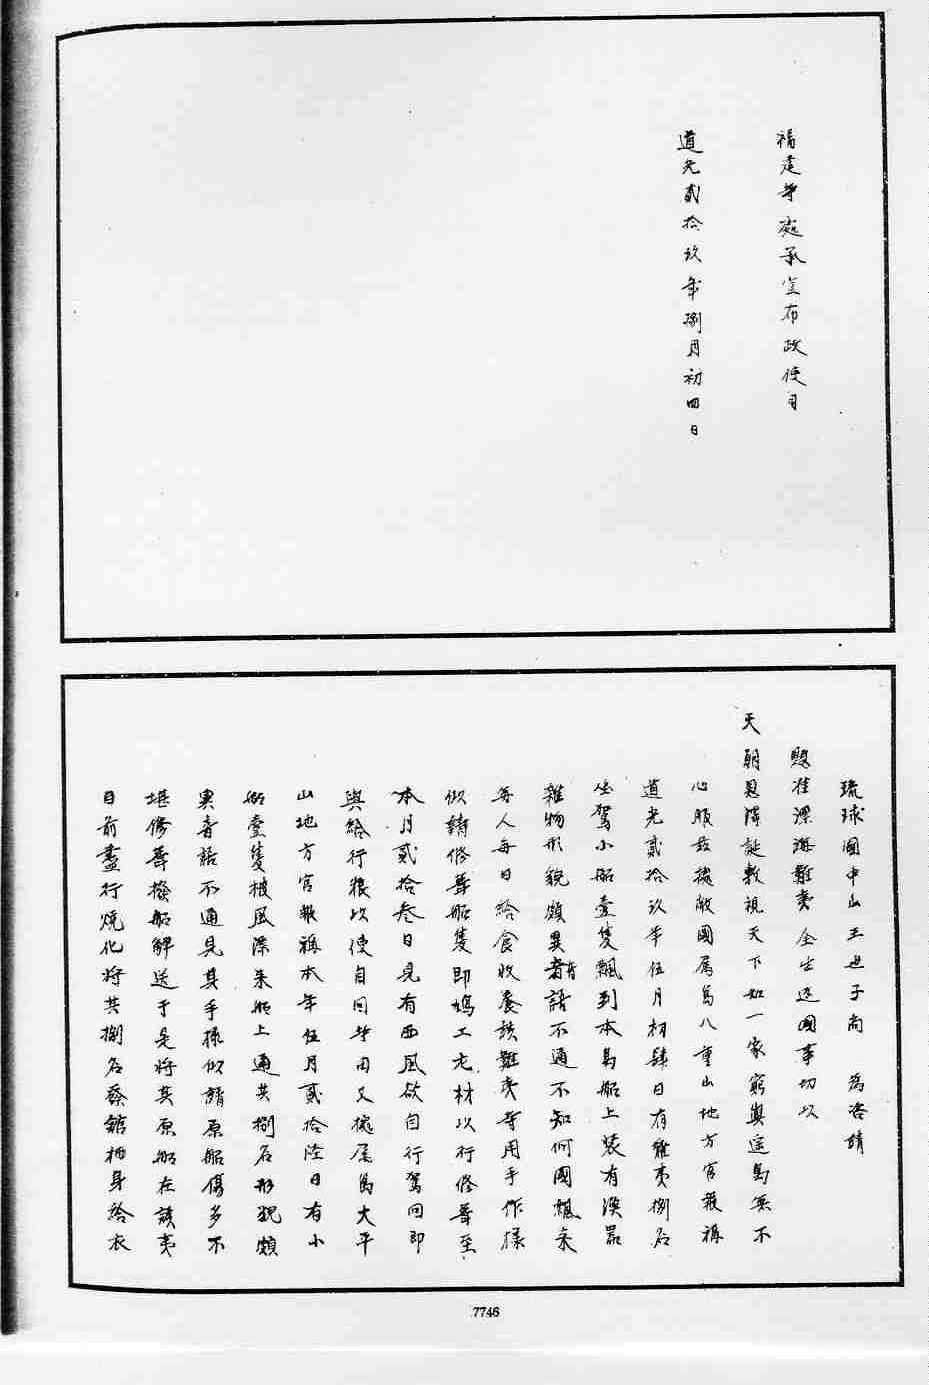 福建等處承宣布政使司
道光貳拾玖年捌月初四日
琉球國中山王世子尚　為咨請
懇准漂海難夷全生返國事切以
天朝恩澤誕敷視天下如一家窮奧遐島無不
心服茲據敝國屬島八重山地方官報稱
道光貳拾玖年伍月初肆日有難夷捌名
坐駕小船壹隻飄到本島船上裝有漁器
雜物形貌頗異音語不通不知何國飄來
每人每日給食收養該難夷等用手作樣
似請修葺船隻即鳩工尤材以行修葺至
本月貳拾叁日見有西風欲自行駕回即
與給行糧以使自回等因又據屬島大平
山地方官報稱本年伍月貳拾陸日有小
船壹隻被風漂來船上通共捌名形貌頗
異音語不通見其手樣似請原船傷多不
堪修葺撥船解送于是將其原船在該夷
目前盡行燒化將其捌名發館栖身給衣
7746